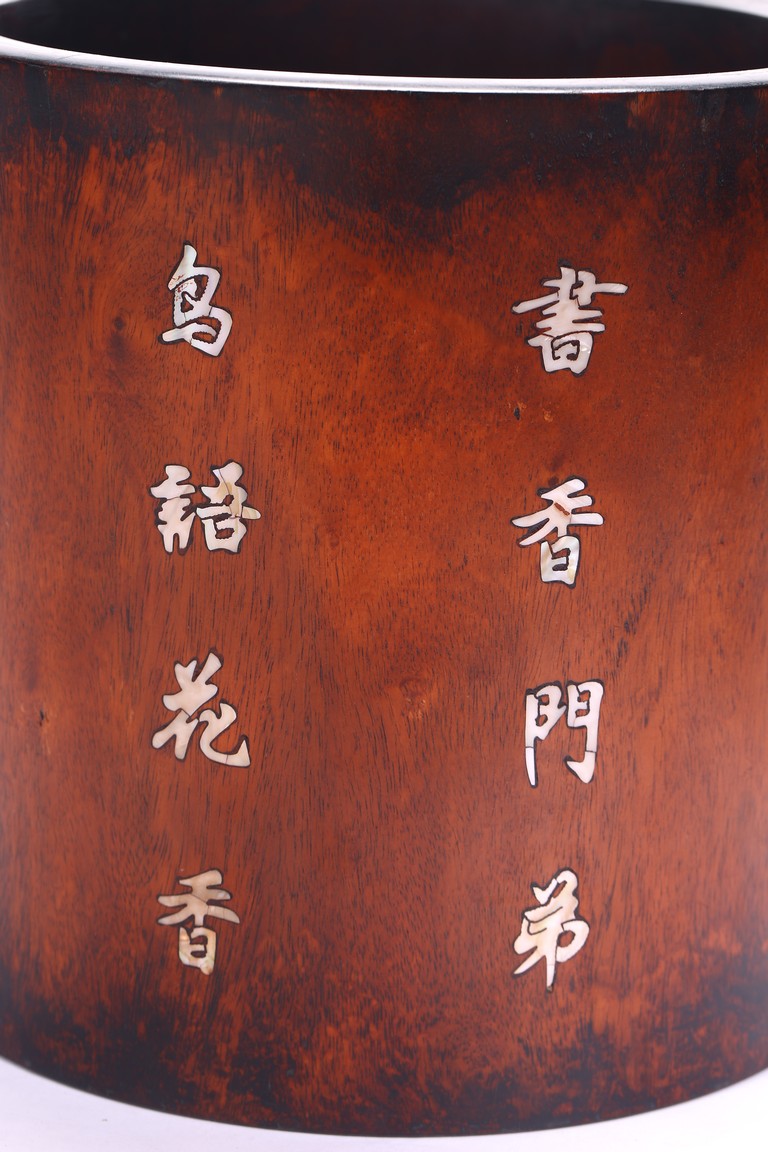 書香門弟
鸟語花香